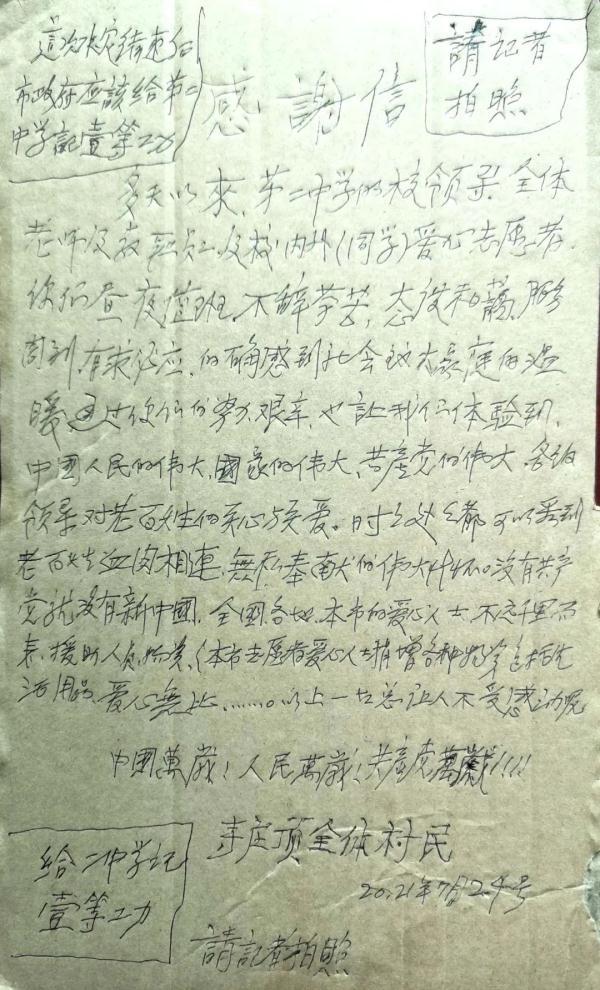 這次水灾結束后
市政府应該给第二
中学記壹等工力
請記者
拍照
感謝信
多天以來，第二中学的校领导、全体
老师及教职员工及校内外(同学)爱心志愿者，
你们昼夜值班，不辞劳苦，态度和蔼，服务
周到，有求必应，的确感到社会主义大家庭的温
暖，通过你们的努力艰辛，也让我们体验到，
中國人民的伟大，國家的伟大，共產党的伟大，各级
领导对老百姓的关心与关爱。时时处处都可以看到
老百姓血肉相連，無私奉献的伟大情怀。没有共产
党就没有新中國，全國各地、本市的爱心人士，不远千里而
来，援助人员、物资，(本市志愿者爱心人士捐增各种物资包括生
活用品，爱心無比……。以上一切怎让人不受感动呢
中國萬歲！人民萬歲！共產党萬歲！！！！
李庄頂全体村民
20.21年7月24号
给二中学記
壹等工力
請記者拍照